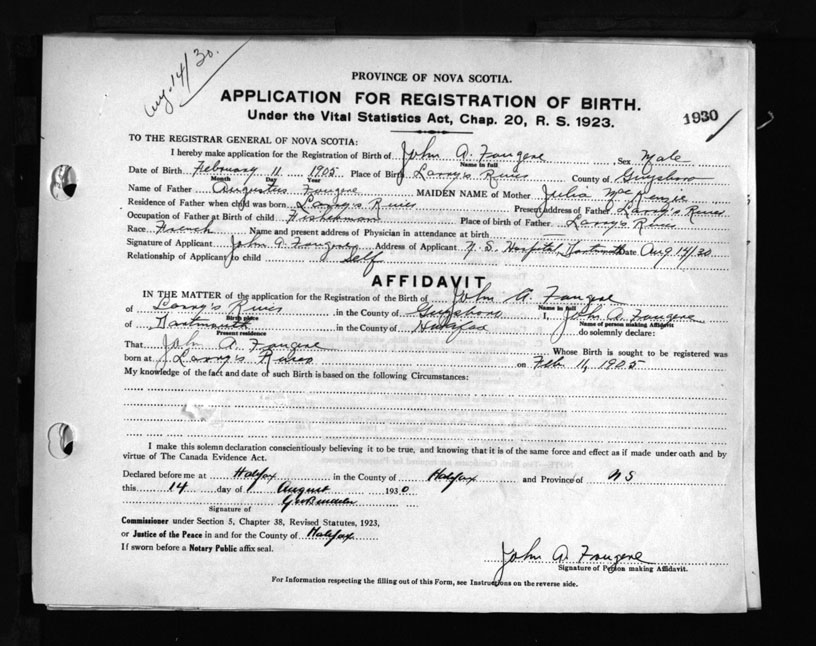 Aug. 14/30.
PROVINCE OF NOVA SCOTIA.
APPLICATION FOR REGISTRATION OF BIRTH.
Under the Vital Statistics Act, Chap. 20, R. S. 1923.
1930
TO THE REGISTRAR GENERAL OF NOVA SCOTIA:
I hereby make application for the Registration of Birth of John A. Fougere Sex Male
Name in full
Date of Birth February 11 1905 Place of Birth Larry's River County of Guysboro
Month Day Year
Name of Father Augustus Fougere MAIDEN NAME of Mother Julia McKenzie
Residence of Father when child was born Larry's River Present address of Father Larry's River
Occupation of Father at Birth of child Fisherman Place of birth of Father Larry's River
Race French Name and present address of Physician in attendance at birth
Signature of Applicant John A. Fougere Address of Applicant N. S. Hospital, Dartmouth Date Aug 14/30
Relationship of Applicant to child Self
AFFIDAVIT
IN THE MATTER of the application for the Registration of the Birth of John A. Fougere
Name in full
of Larry's River in the County of Guysboro I, John A. Fougere
Birth place Name of person making Affidavit
of Dartmouth in the County of Halifax do solemnly declare:
Present residence
That John A. Fougere Whose Birth is sought to be registered was
born at Larry's River on Feb 11, 1905
My knowledge of the fact and date of such Birth is based on the following Circumstances:
I make this solemn declaration conscientiously believing it to be true, and knowing that it is of the same force and effect as if made under oath and by
virtue of The Canada Evidence Act.
Declared before me at Halifax in the County of Halifax and Province of N S
this 14 day of August 1930
Signature of
Commissioner under Section 5, Chapter 38, Revised Statutes, 1923,
or Justice of the Peace in and for the County of Halifax
If sworn before a Notary Public affix seal.
John A. Fougere
Signature of Person making Affidavit.
For Information respecting the filling out of this Form, see Instructions on the reverse side.